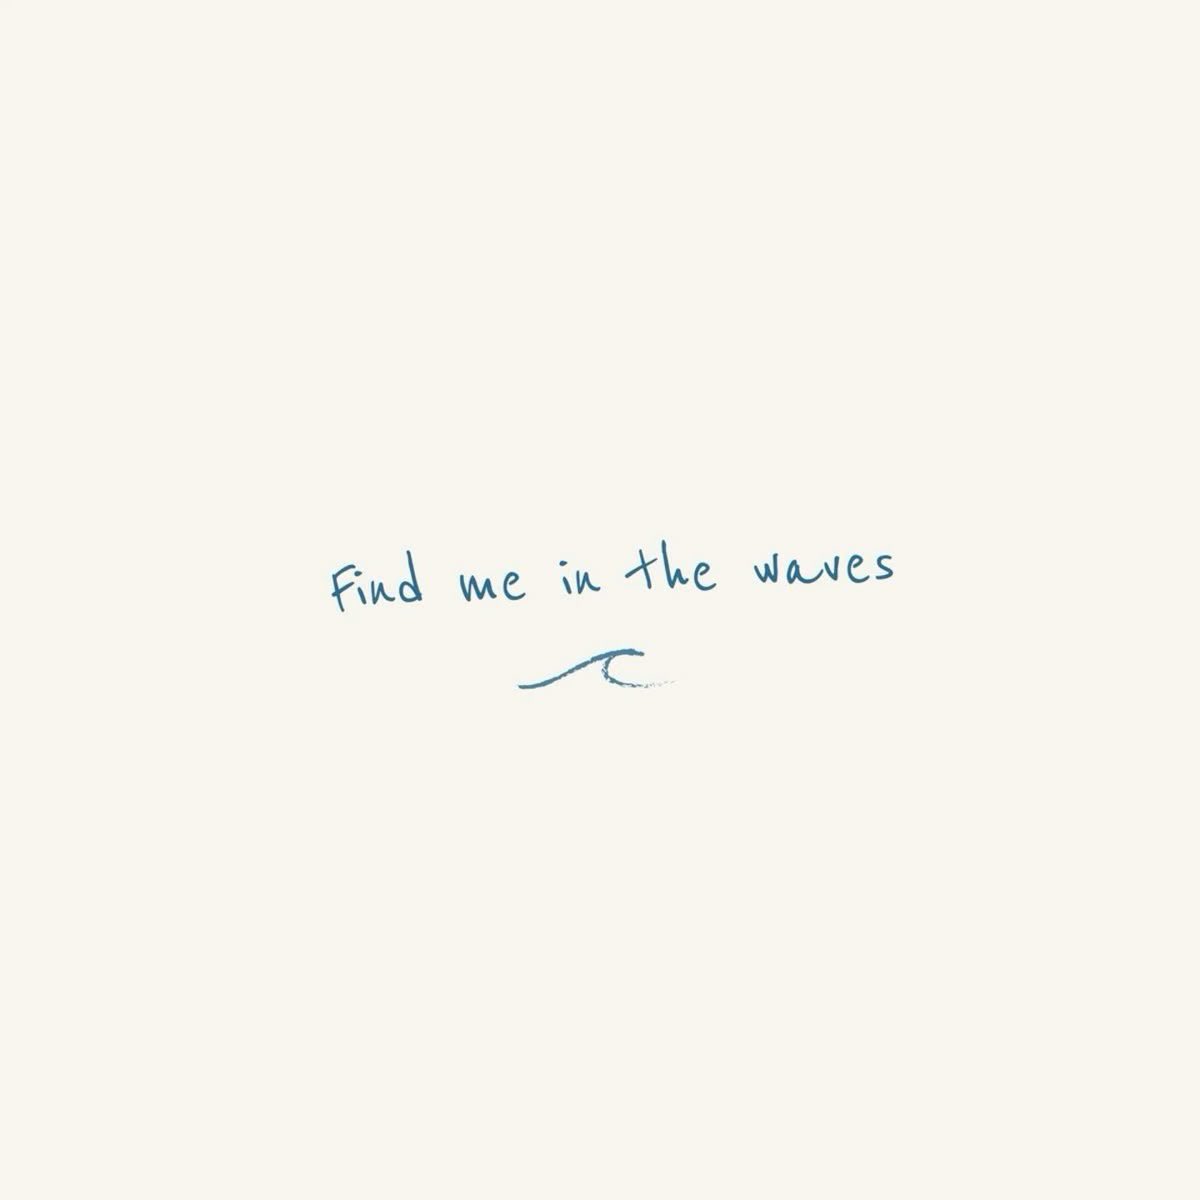 Find me in the waves